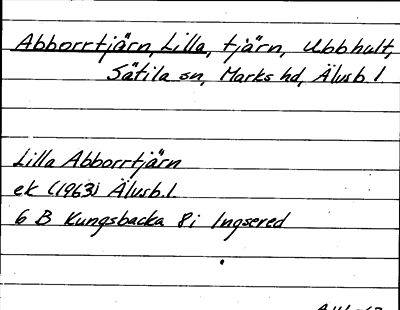 Abborrtjärn, Lilla, tjärn, Ubbhult,
Sätila sn, Marks hd, Älvsb. l.
Lilla Abborrtjärn
ek (1963) Älvsb. l.
6 B Kungsbacka 8 i Ingsered